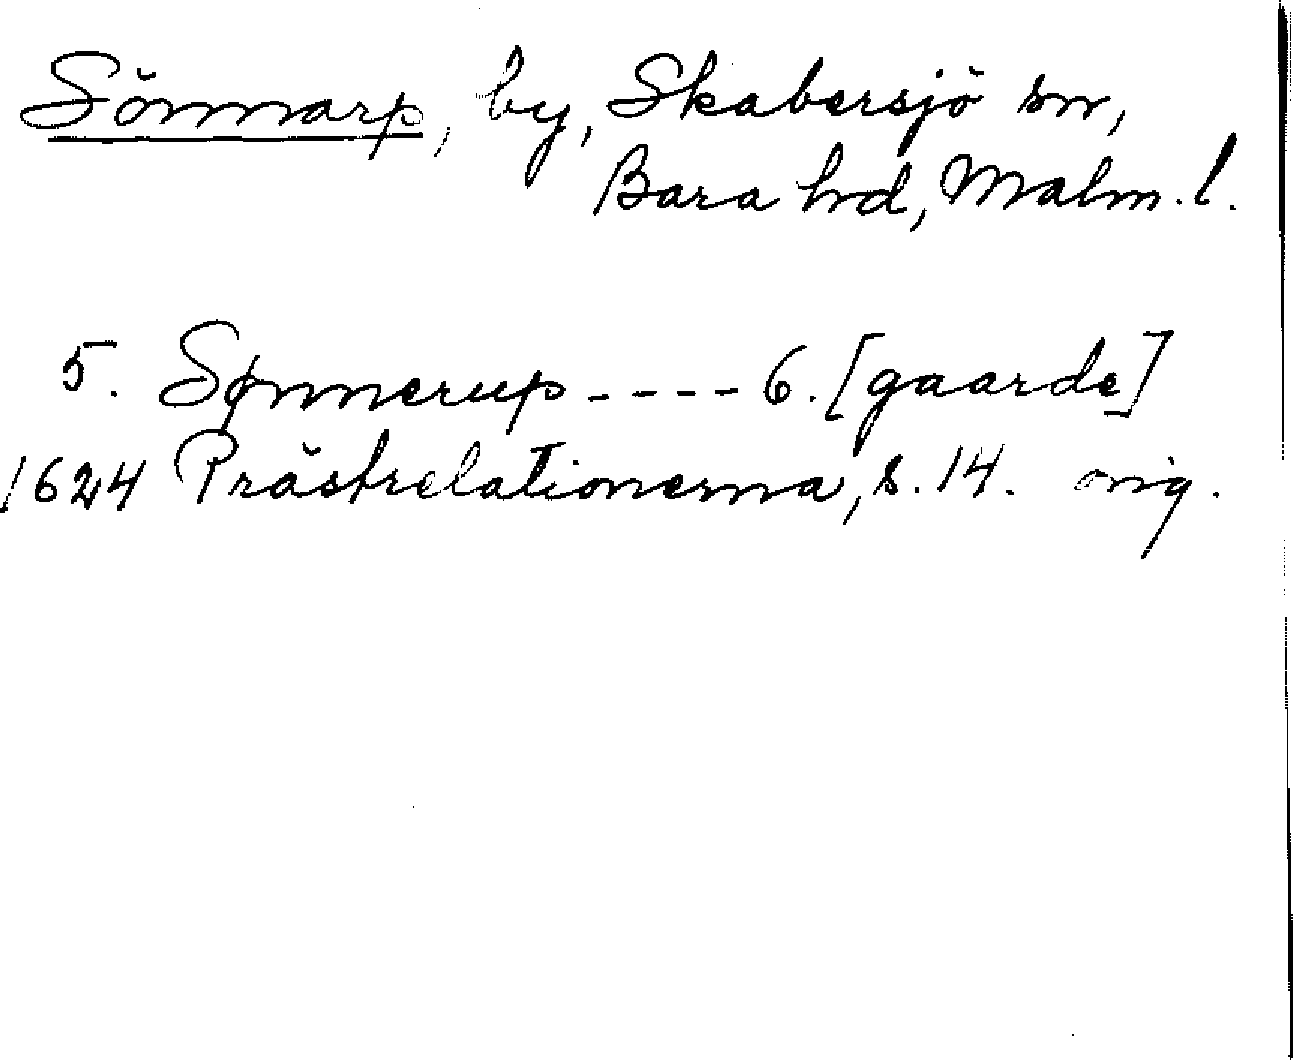 Sönnarp, by, Skabersjö sn,
Bara hd, Malm. l.
5. Sønnerup ---- 6. [gaarde]
1624 Prästrelationerna, s. 14. orig.